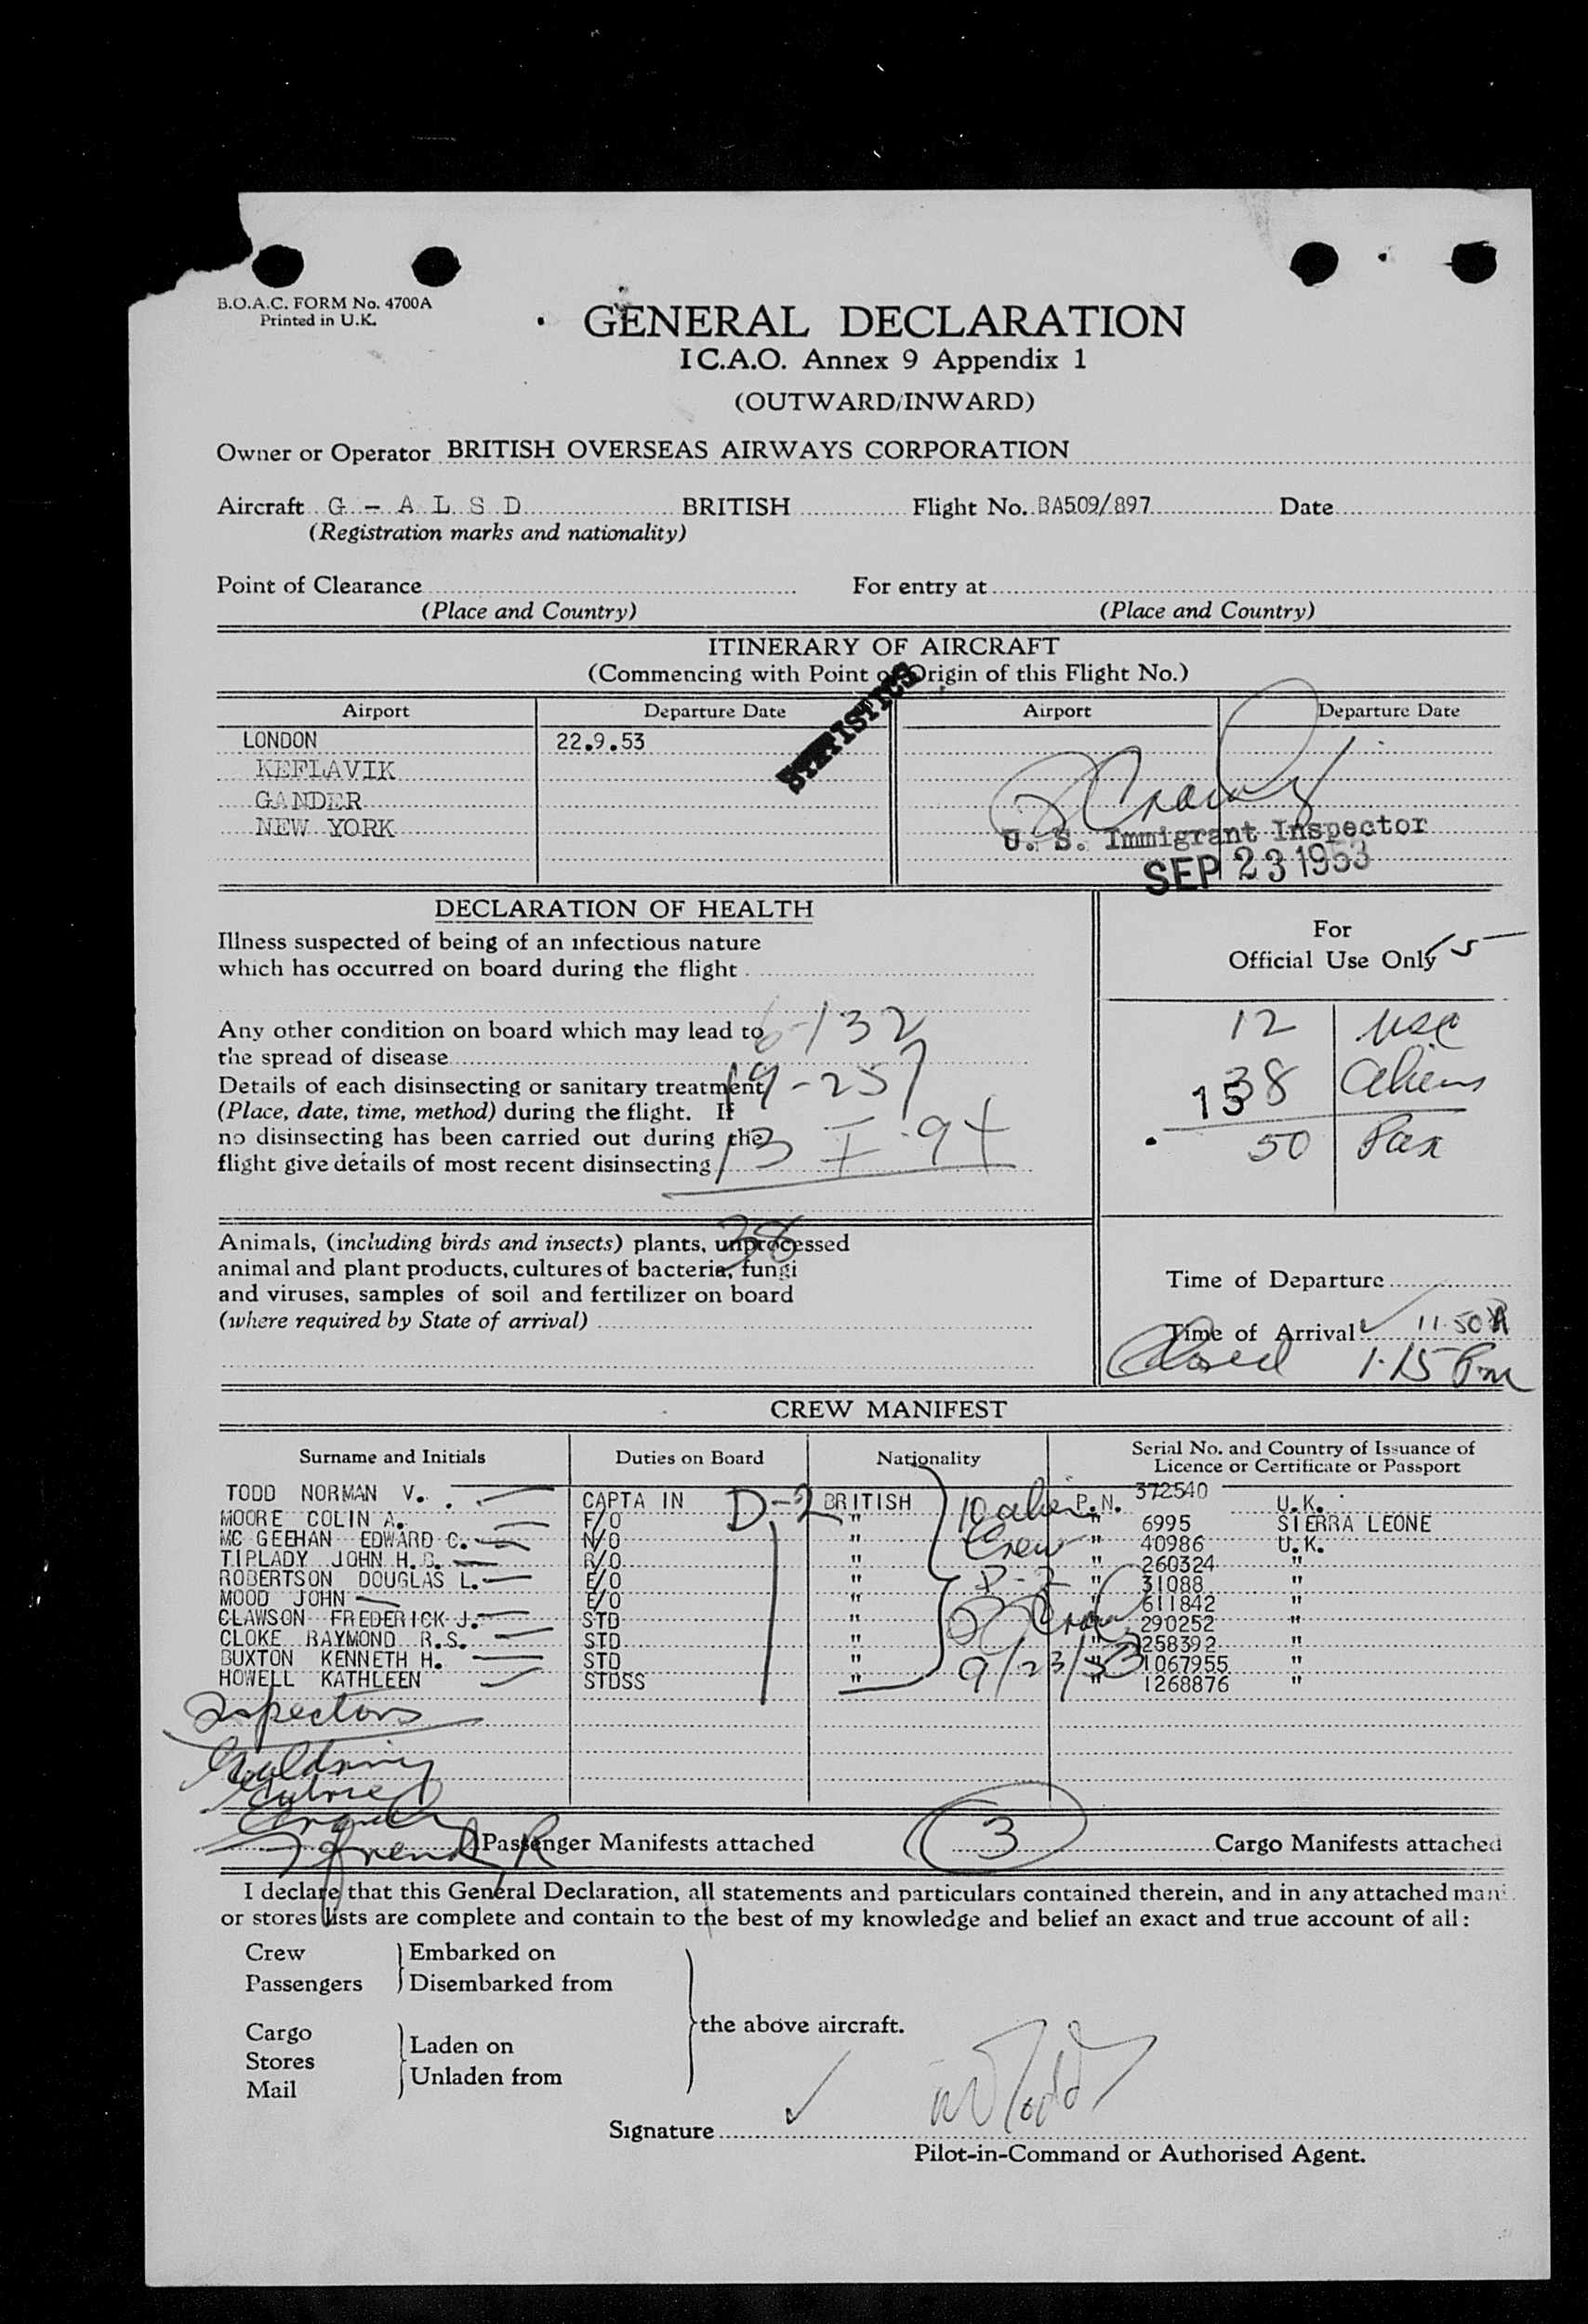 B.O.A.C. FORM No. 4700A
Printed in U.K.
GENERAL DECLARATION
I C.A.O. Annex 9 Appendix 1
(OUTWARD/INWARD)
Owner or Operator BRITISH OVERSEAS AIRWAYS CORPORATION
Aircraft G - A L S D BRITISH Flight No. BA509/897 Date
(Registration marks and nationality)
Point of Clearance For entry at
(Place and Country) (Place and Country)
ITINERARY OF AIRCRAFT
(Commencing with Point of Origin of this Flight No.)
STATISTICS
Airport Departure Date Airport Departure Date
LONDON 22.9.53
KEFLAVIK
GANDER
NEW YORK
U. S. Immigrant Inspector
SEP 23 1953
DECLARATION OF HEALTH
Illness suspected of being of an infectious nature
which has occurred on board during the flight
Any other condition on board which may lead to
the spread of disease
6-132
Details of each disinsecting or sanitary treatment
19-257
(Place, date, time, method) during the flight. If
no disinsecting has been carried out during the
flight give details of most recent disinsecting
13 I-94
38
For
Official Use Only
5
12 USC
38 Aliens
15
50 Pax
Animals, (including birds and insects) plants, unprocessed
animal and plant products, cultures of bacteria, fungi
and viruses, samples of soil and fertilizer on board
(where required by State of arrival)
Time of Departure
Time of Arrival 11.50 A
Closed 1.15 Pm
CREW MANIFEST
Surname and Initials Duties on Board Nationality Serial No. and Country of Issuance of
Licence or Certificate or Passport
TODD NORMAN V. CAPTAIN D-2 BRITISH P.N. 372540 U.K.
MOORE COLIN A. F/O " " 6995 SIERRA LEONE
MC GEEHAN EDWARD C. N/O " " 40986 U.K.
TIPLADY JOHN H. R/O " " 260324 "
ROBERTSON DOUGLAS L. E/O " " 31088 "
MOOD JOHN E/O " " 611842 "
CLAWSON FREDERICK J. STD " " 290252 "
CLOKE RAYMOND R.S. STD " " 258392 "
BUXTON KENNETH H. STD " " 1067955 "
HOWELL KATHLEEN STDSS " " 1268876 "
10 alien
Crew
D-2
9/23/53
Inspectors
Passenger Manifests attached 3 Cargo Manifests attached
I declare that this General Declaration, all statements and particulars contained therein, and in any attached mani
or stores lists are complete and contain to the best of my knowledge and belief an exact and true account of all :
Crew Embarked on
Passengers Disembarked from
the above aircraft.
Cargo
Laden on
Stores
Unladen from
Mail
Signature
Pilot-in-Command or Authorised Agent.